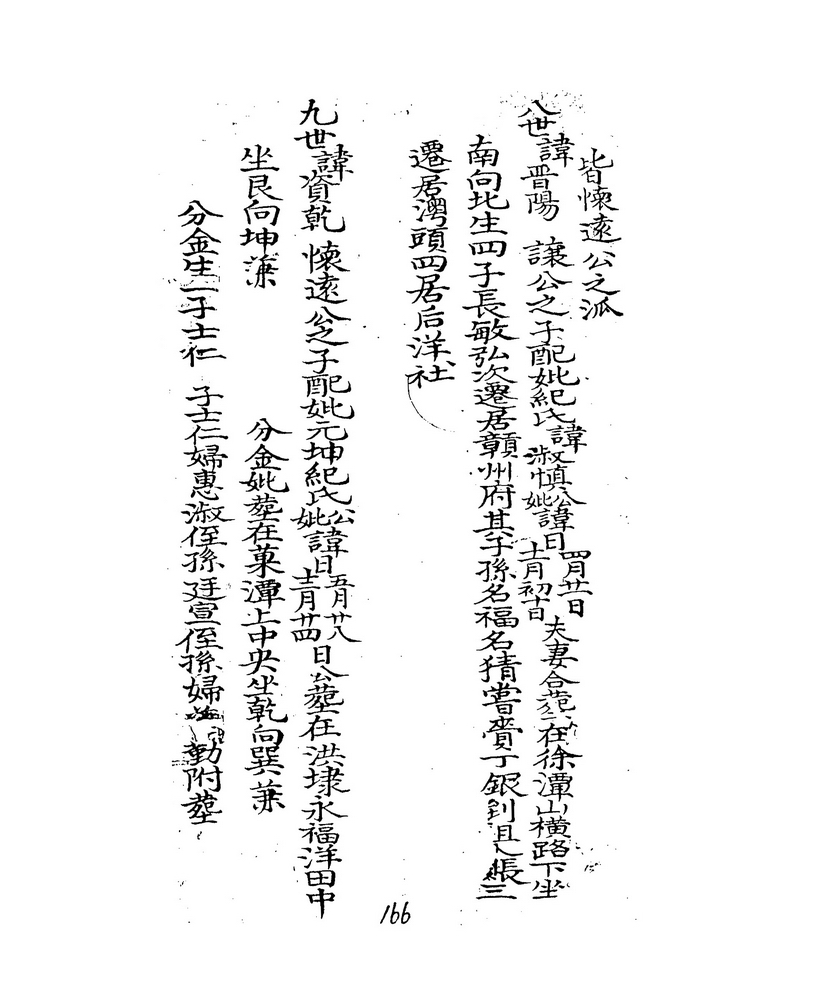 皆懷遠公之派
八世諱晋陽 讓公之子配妣紀氏諱淑慎公妣諱日四月廿日十一月初十日夫妻合塟在徐潭山橫路下坐
南向北生四子長敏弘次遷居贛州府其子孫名福名猜嘗賣丁銀到且人帳三
遷居灣頭四居后洋社
九世諱資乾 懷遠公之子配妣元坤紀氏公妣諱日五月廿八十二月廿四日公塟在洪埭永福洋田中
坐艮向坤兼 分金妣塟在菓潭上中央坐乾向巽兼
分金生一子士仁 子士仁婦惠淑侄孫廷宣侄孫婦 勤附塟
166